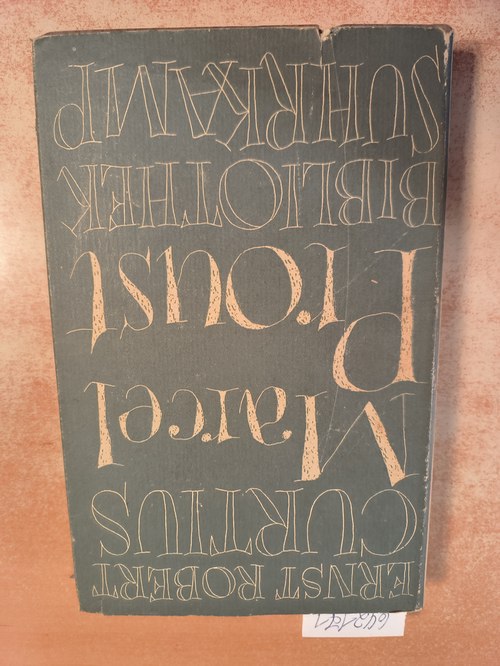 ERNST ROBERT
CURTIUS
Marcel
Proust
BIBLIOTHEK
SUHRKAMP